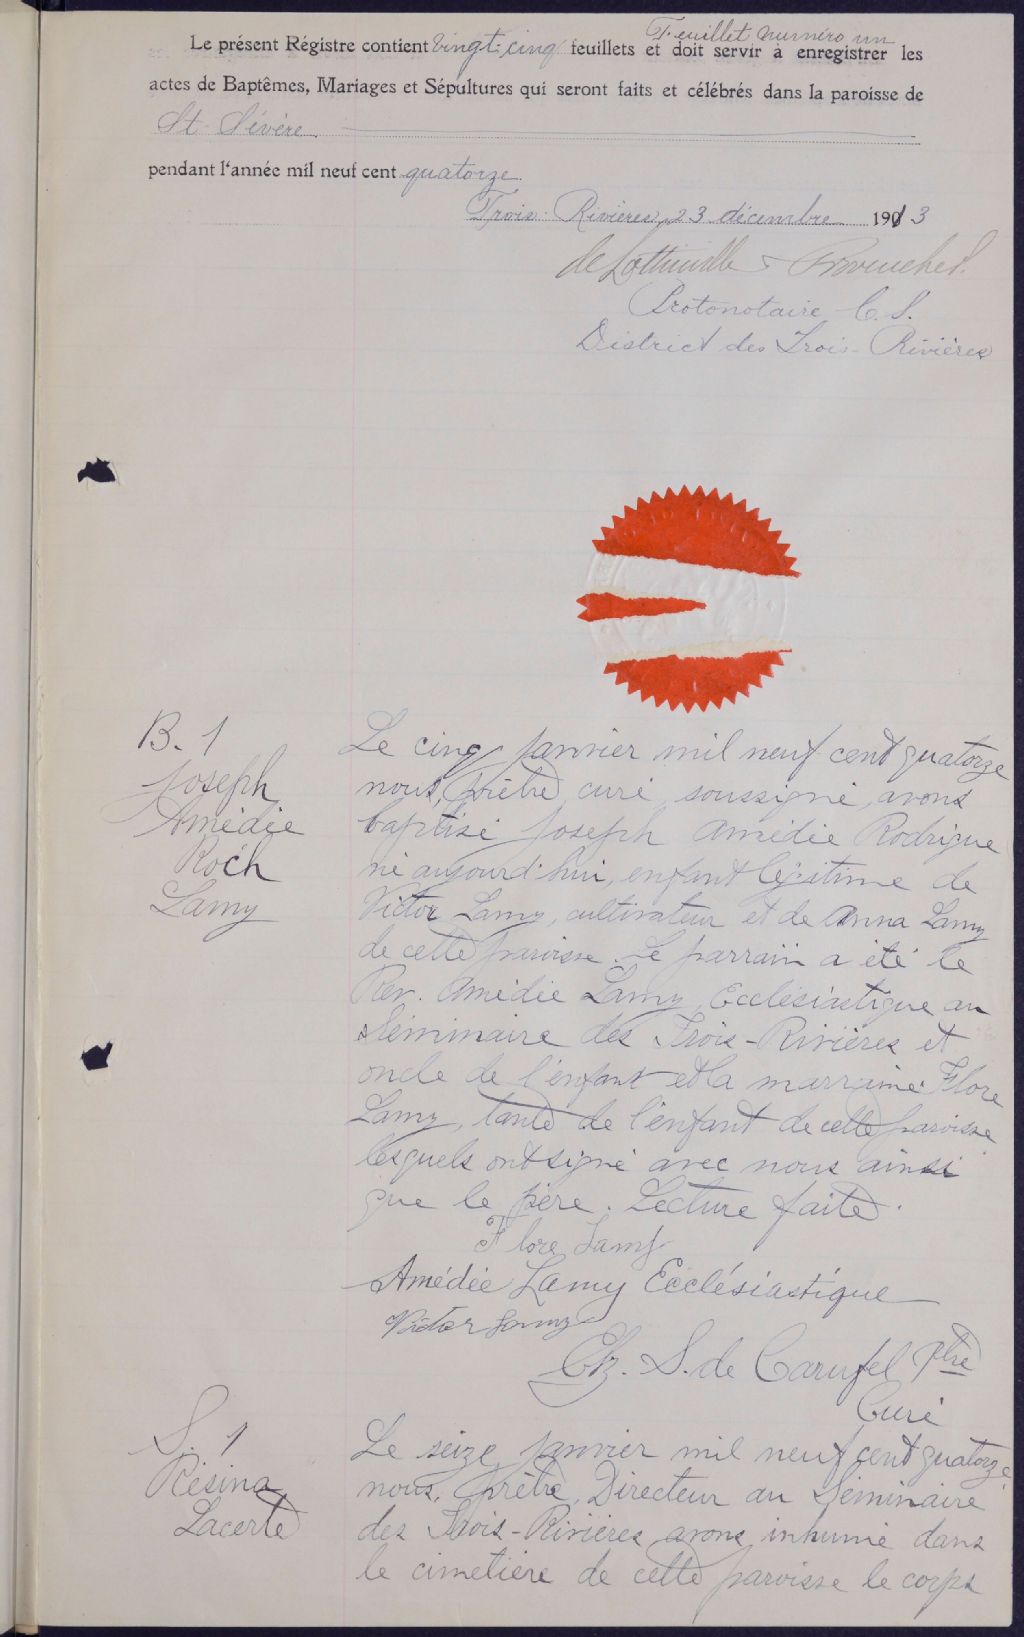 Feuillet numéro un
Le présent Régistre contient vingt-cinq feuillets et doit servir à enregistrer les
actes de Baptêmes, Mariages et Sépultures qui seront faits et célébrés dans la paroisse de
St Sévère
pendant l'année mil neuf cent quatorze
Trois-Rivières, 23 décembre 1913
de Lottinville & Provencher
Protonotaire C. S.
District des Trois-Rivières
B. 1
Joseph
Amédée
Roch
Lamy
Le cinq janvier mil neuf cent quatorze
nous, prêtre curé soussigné, avons
baptisé Joseph Amédée Rodrigue
né aujourd'hui, enfant légitime de
Victor Lamy, cultivateur et de Anna Lamy
de cette paroisse. Le parrain a été le
Rev. Amédée Lamy, Ecclésiastique au
Séminaire des Trois-Rivières et
oncle de l'enfant et la marraine Flore
Lamy, tante de l'enfant de cette paroisse
lesquels ont signé avec nous ainsi
que le père. Lecture faite.
Flore Lamy
Amédée Lamy Ecclésiastique
Victor Lamy
Chz. S. de Carufel Ptre
Curé
S. 1
Résina
Lacerte
Le seize janvier mil neuf cent quatorze
nous, prêtre, Directeur au Séminaire
des Trois-Rivières avons inhumé dans
le cimetière de cette paroisse le corps